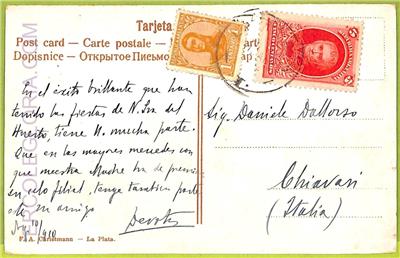 Tarjeta
Post card – Carte postale –
Dopisnice – Открытое Письмо
En el éxito brillante que han
tenido las fiestas de N. Sra del
Huerto, tiene U. mucha parte.
Que en las mayores mercedes con
que nuestra Madre ha de premiar
su celo filial, tenga tambien parte
este su amigo
Devoto
910
Sig. Daniele Dallorso
Chiavari
(Italia)
F. A. Christmann – La Plata.
ERCOLEGLORIA.COM